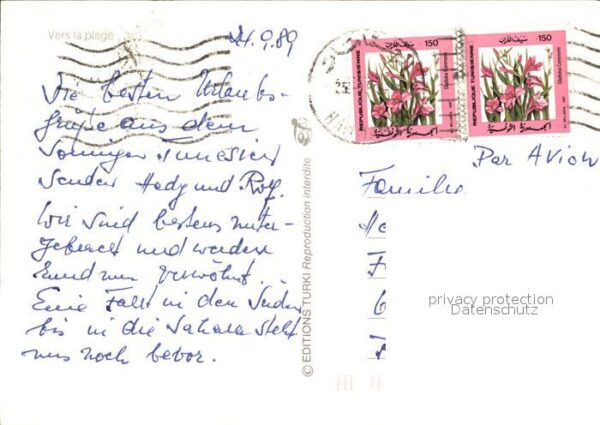 Vers la plage
24.9.89
Die besten Urlaubs-
grüße aus dem
sonnigen Tunesien
senden Hedy und Rolf.
Wir sind bestens unter-
gebracht und werden
rund um verwöhnt.
Eine Fahrt in den Süden
bis in die Sahara steht
uns noch bevor.
© EDITIONS TURKI Reproduction interdite
150
REPUBLIQUE TUNISIENNE
سيف الغراب
الجمهورية التونسية
150
REPUBLIQUE TUNISIENNE
سيف الغراب
الجمهورية التونسية
Par Avion
Familie
privacy protection
Datenschutz